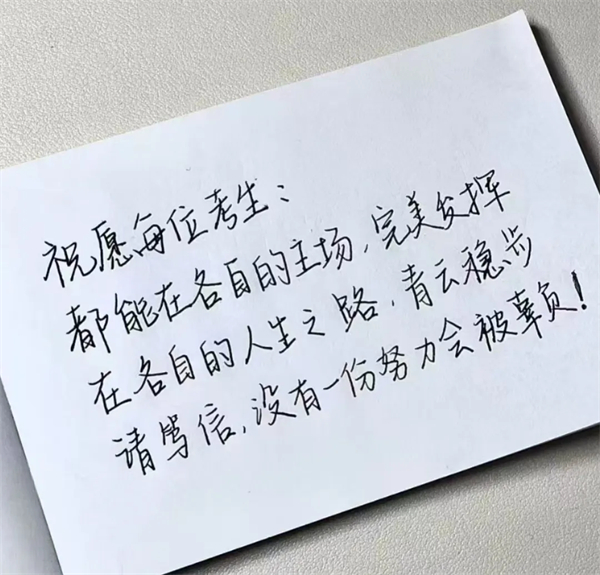 祝愿每位考生:
都能在各自的主场,完美发挥
在各自的人生之路,青云稳步
请笃信,没有一份努力会被辜负!